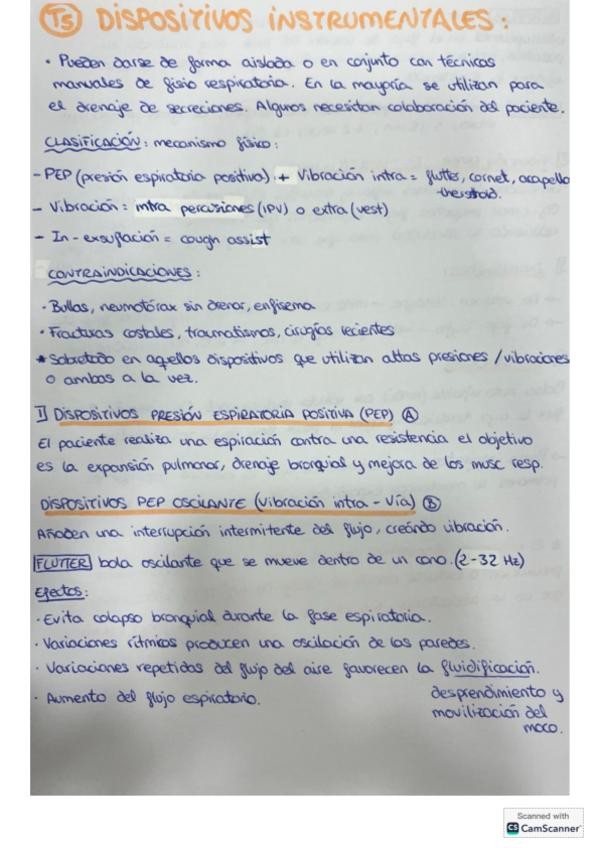 T5 DISPOSITIVOS INSTRUMENTALES:
· Pueden darse de forma aislada o en conjunto con técnicas
manuales de fisio respiratoria. En la mayoría se utilizan para
el drenaje de secreciones. Algunos necesitan colaboración del paciente.
CLASIFICACIÓN: mecanismo físico:
- PEP (presión espiratoria positiva) + Vibración intra = flutter, cornet, acapella
- Vibración: intra percusiones (IPV) o extra (vest)
- In-exsuflación = cough assist
CONTRAINDICACIONES:
· Bullas, neumotórax sin drenar, enfisema
· Fracturas costales, traumatismos, cirugías recientes
* Sobretodo en aquellos dispositivos que utilizan altas presiones / vibraciones
o ambas a la vez.
1) DISPOSITIVOS PRESIÓN ESPIRATORIA POSITIVA (PEP) A
El paciente realiza una espiración contra una resistencia el objetivo
es la expansión pulmonar, drenaje bronquial y mejora de los musc resp.
DISPOSITIVOS PEP OSCILANTE (Vibración intra-vía) B
Añaden una interrupción intermitente del flujo, creando vibración.
FLUTTER bola oscilante que se mueve dentro de un cono. (2-32 Hz)
Efectos:
· Evita colapso bronquial durante la fase espiratoria.
· Variaciones rítmicas producen una oscilación de las paredes.
· Variaciones repetidas del flujo del aire favorecen la fluidificación.
desprendimiento y
movilización del
moco.
· Aumento del flujo espiratorio.
Scanned with
CS CamScanner